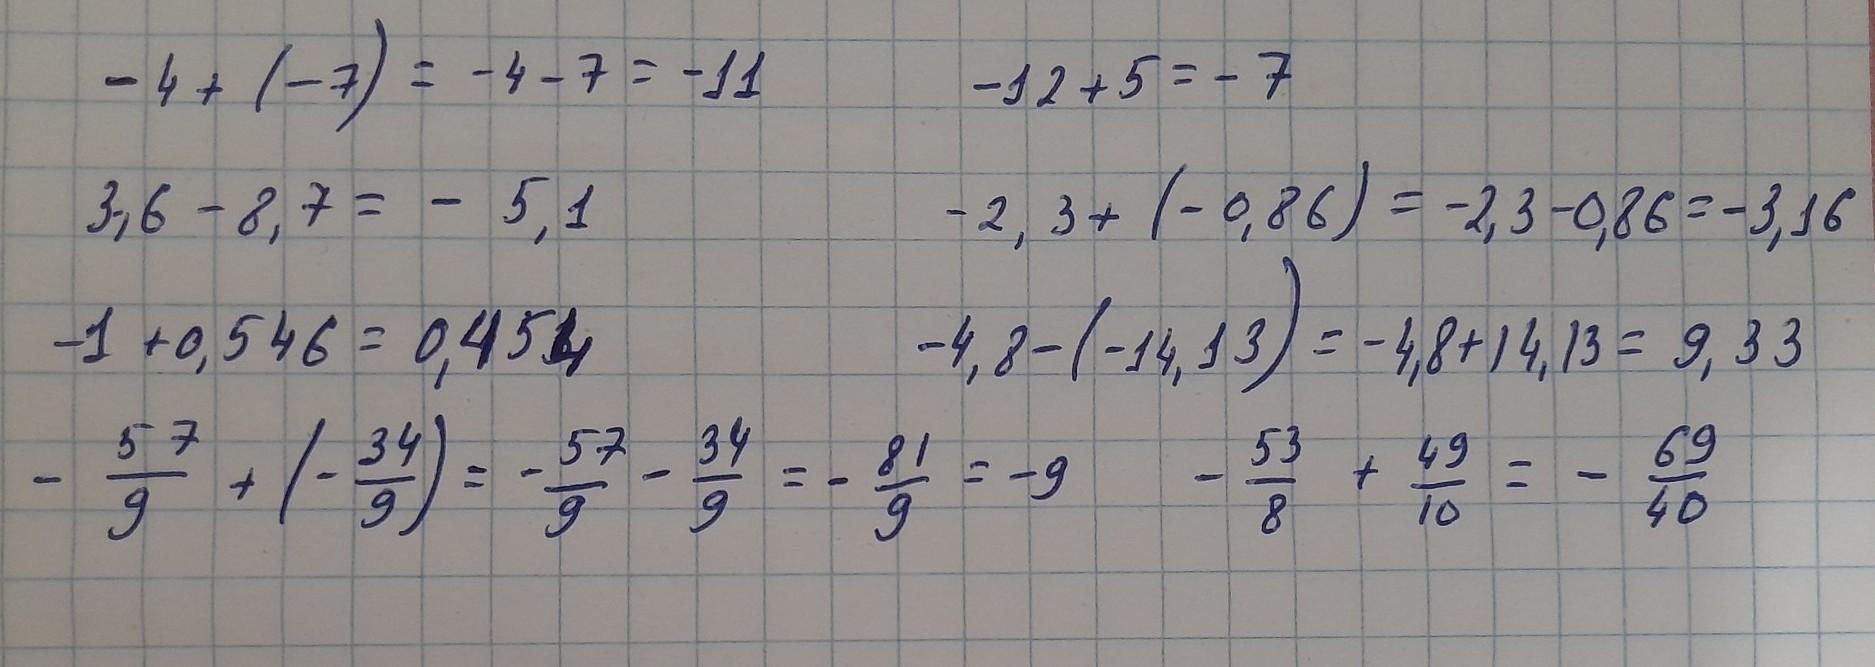 -4+(-7) = -4-7 = -11 -12+5=-7
3,6-8,7= - 5,1 -2,3+(-0,86) = -2,3-0,86=-3,16
-1+0,546=0,454 -4,8-(-14,13)=-4,8+14,13= 9,33
-57/9+(-34/9)=-57/9-34/9=-81/9=-9 -53/8+49/10=-69/40